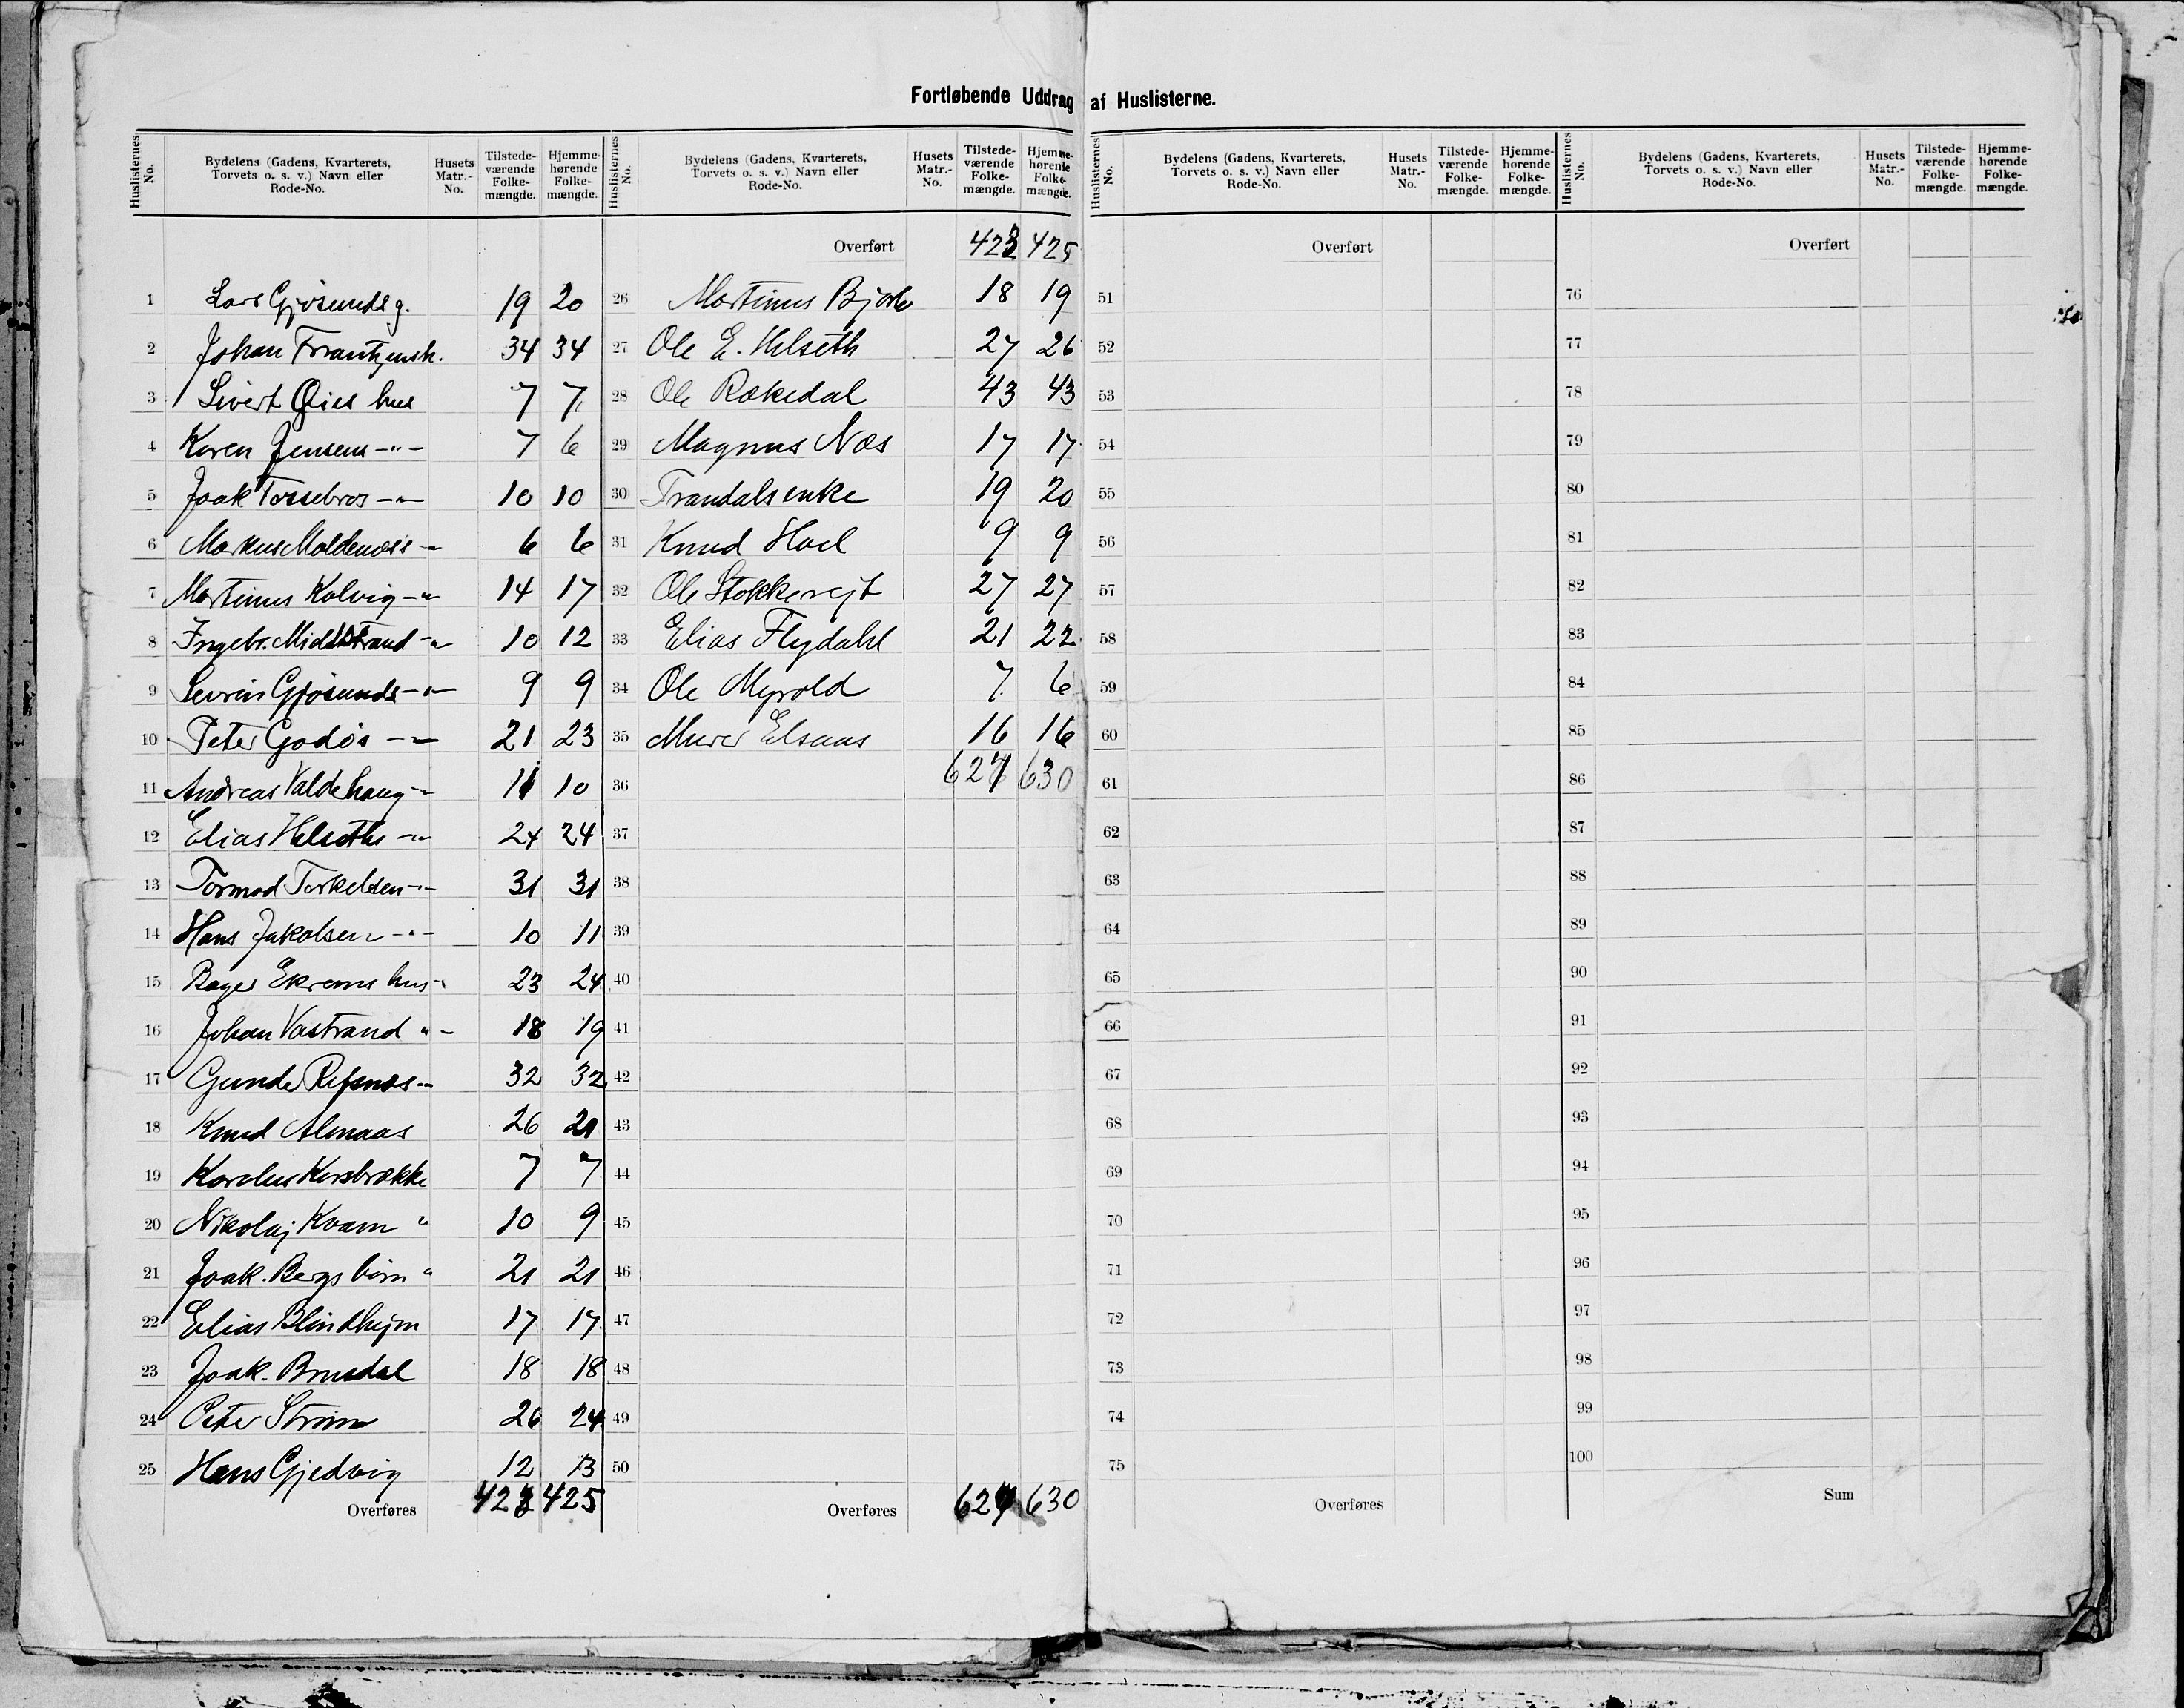 Fortløbende Uddrag af Huslisterne.
Huslisternes No. Bydelens (Gadens, Kvarterets, Torvets o. s. v.) Navn eller Rode-No. Husets Matr.-No. Tilstede-værende Folke-mængde. Hjemme-hørende Folke-mængde.
1 Lars Gjøsunds g. 19 20
2 Johan Frantzensh. 34 34
3 Sivert Øies hus 7 7
4 Karen Jensens -"- 7 6
5 Joak Tossebros -"- 10 10
6 Markus Moldenæs's - 6 6
7 Martinus Kalvig -"- 14 17
8 Ingebr. Midtstrand -"- 10 12
9 Sevrin Gjøsunds -"- 9 9
10 Peter Godøs -"- 21 23
11 Andreas Valdehaug -"- 11 10
12 Elias Helseths -"- 24 24
13 Tormod Torkelsen -"- 31 31
14 Hans Jakobsen -"- 10 11
15 Bager Ekrems hus - 23 24
16 Johan Vastrand "- 18 19
17 Gunde Refsnæs - 32 32
18 Knud Almaas 26 21
19 Karolus Korsbrække 7 7
20 Nikolaj Kvam " 10 9
21 Joak. Bergs børn " 21 21
22 Elias Blindhejm 17 17
23 Joak. Brusdal 18 18
24 Peter Strøm 26 24
25 Hans Gjedvig 12 13
Overføres 423 425
Huslisternes No. Bydelens (Gadens, Kvarterets, Torvets o. s. v.) Navn eller Rode-No. Husets Matr.-No. Tilstede-værende Folke-mængde. Hjemme-hørende Folke-mængde.
Overført 423 425
26 Martinus Bjørlo 18 19
27 Ole E. Helseth 27 26
28 Ole Rækedal 43 43
29 Magnus Næs 17 17
30 Trandals enke 19 20
31 Knud Hoel 9 9
32 Ole Stokkerejt 27 27
33 Elias Flydahl 21 22
34 Ole Myrold 7 6
35 Murer Elsaas 16 16
36 627 630
37
38
39
40
41
42
43
44
45
46
47
48
49
50
Overføres 627 630
Huslisternes No. Bydelens (Gadens, Kvarterets, Torvets o. s. v.) Navn eller Rode-No. Husets Matr.-No. Tilstede-værende Folke-mængde. Hjemme-hørende Folke-mængde.
Overført
51
52
53
54
55
56
57
58
59
60
61
62
63
64
65
66
67
68
69
70
71
72
73
74
75
Overføres
Huslisternes No. Bydelens (Gadens, Kvarterets, Torvets o. s. v.) Navn eller Rode-No. Husets Matr.-No. Tilstede-værende Folke-mængde. Hjemme-hørende Folke-mængde.
Overført
76
77
78
79
80
81
82
83
84
85
86
87
88
89
90
91
92
93
94
95
96
97
98
99
100
Sum